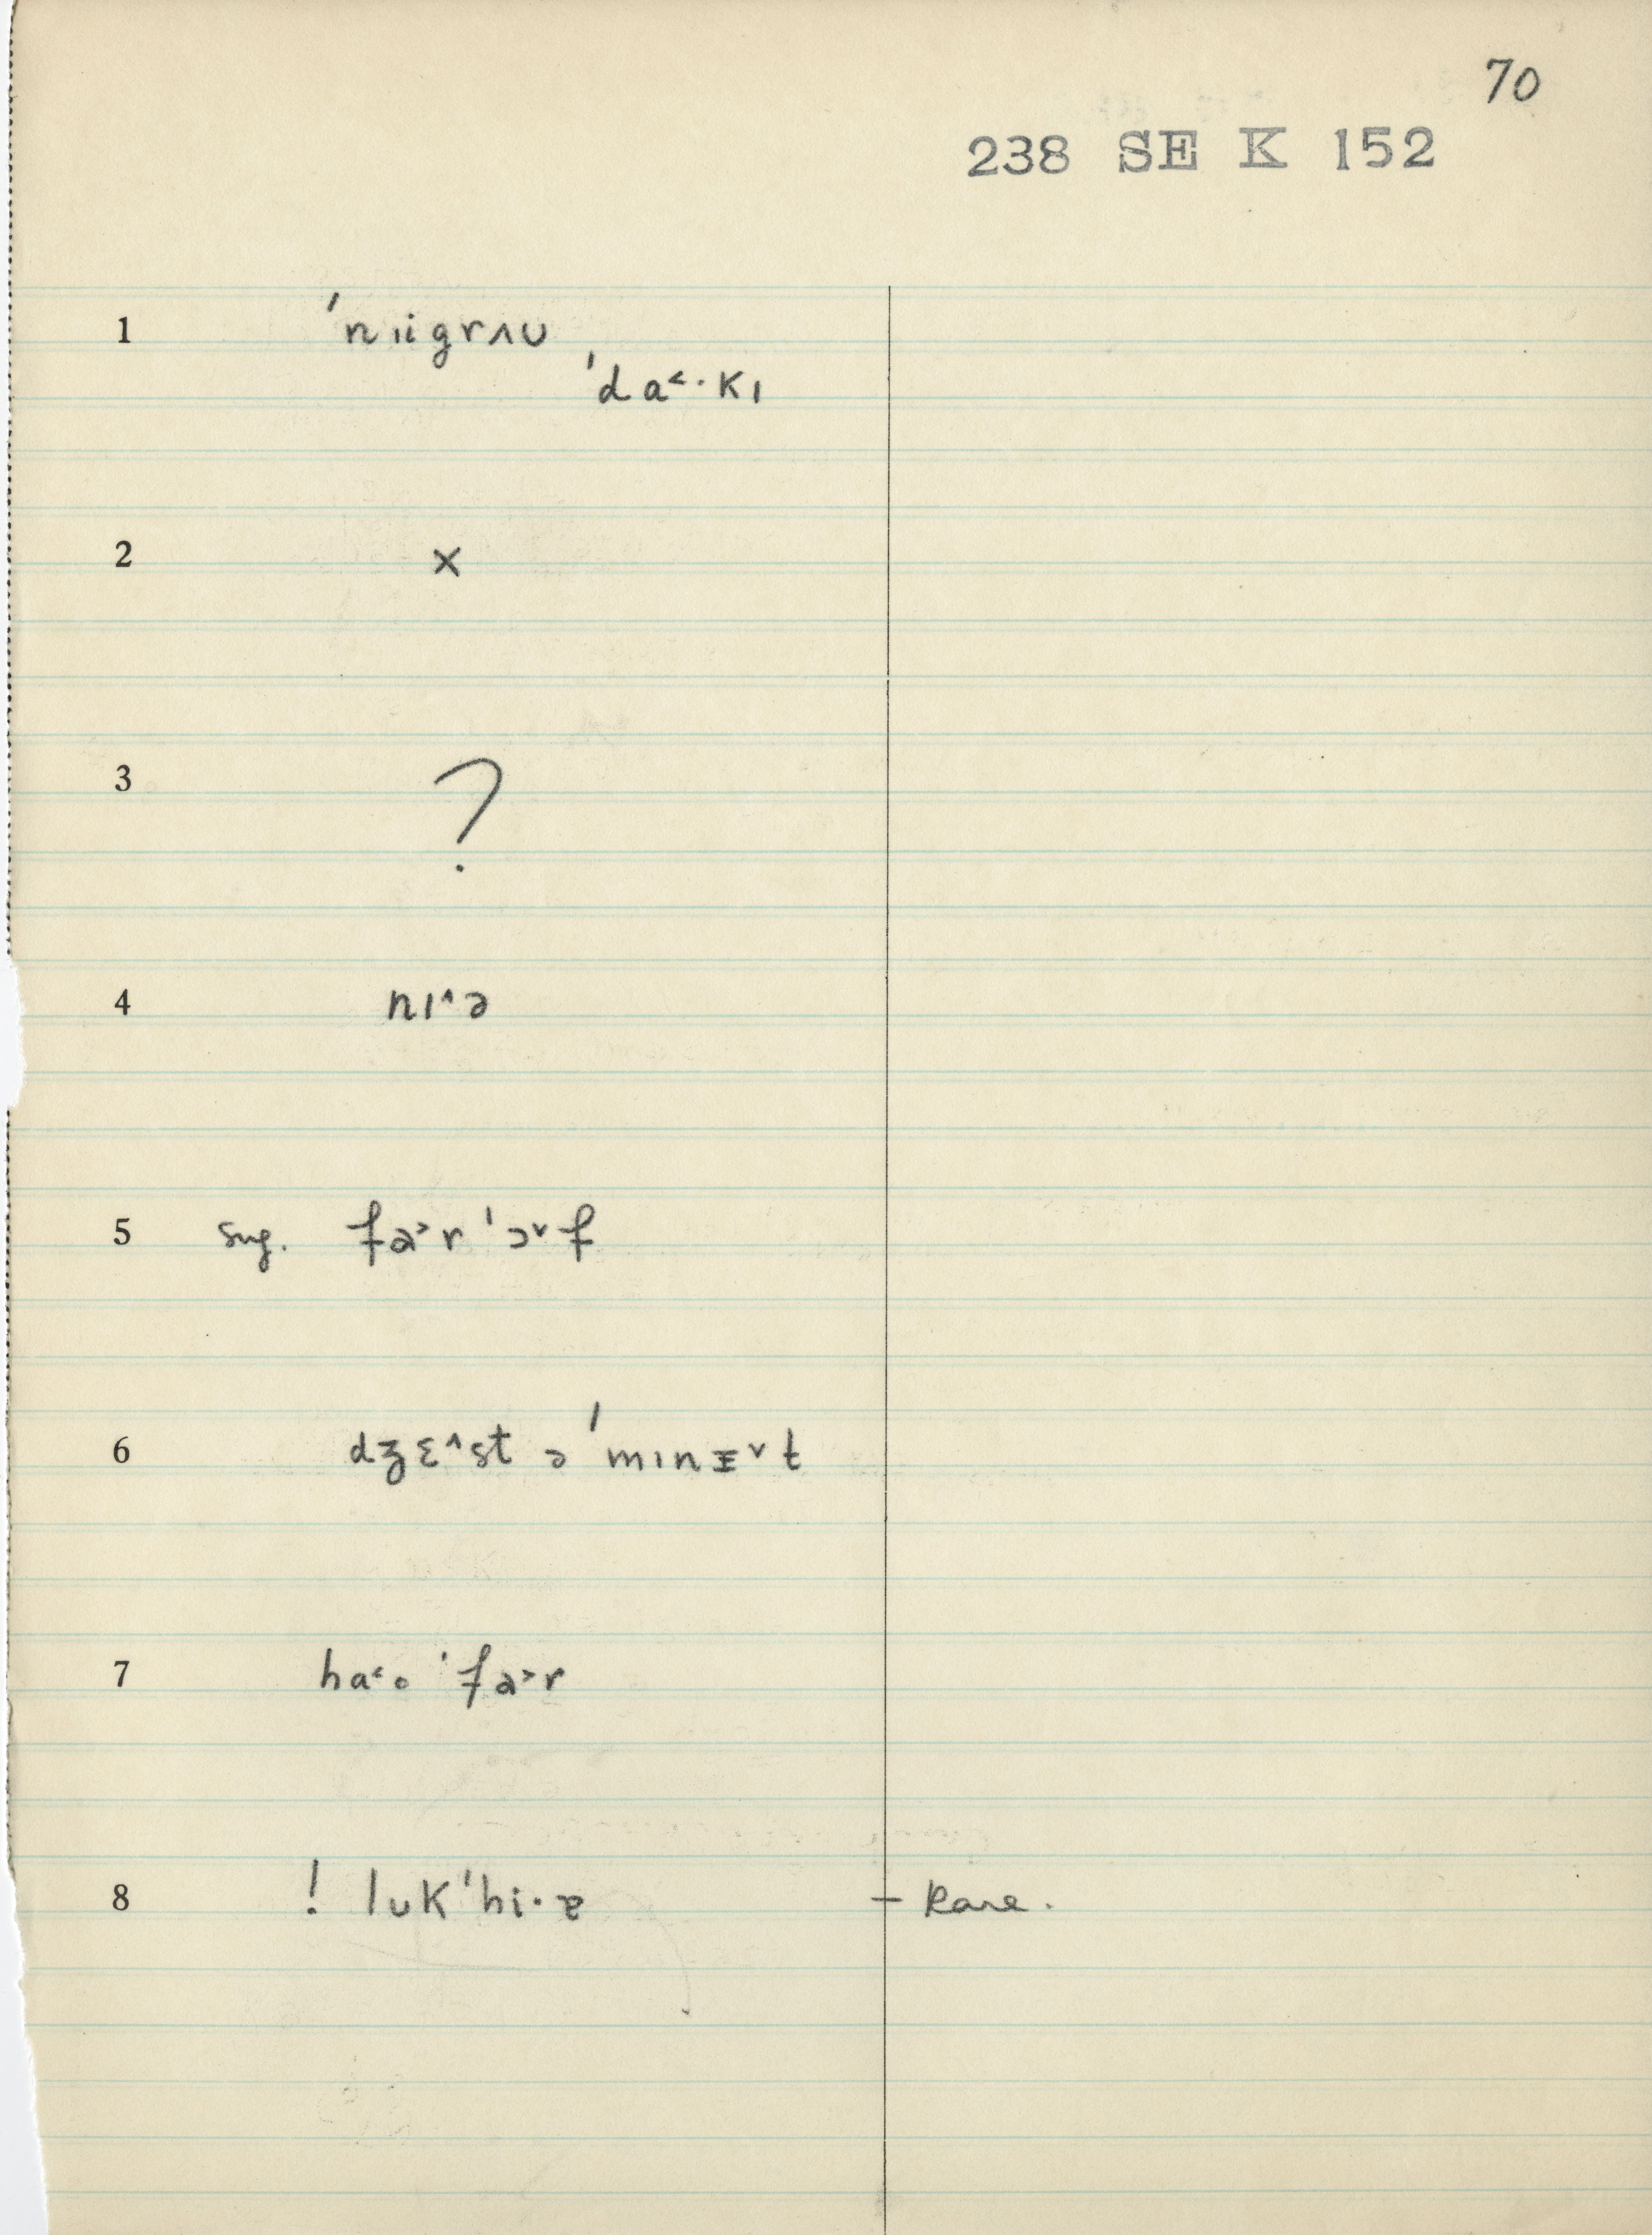 70
238 SE K 152
1 ˈnɪigrʌʊ
ˈda˂·kɪ
2 ×
3 ?
4 nɪ^ə
5 sug. fɑ˃r ˈɔ˅f
6 dʒɛ^st ə ˈmɪnɪ˅t
7 ha˂o ˈfɑ˃r
8 ! lʊk ˈhi·ɐ – Rare.